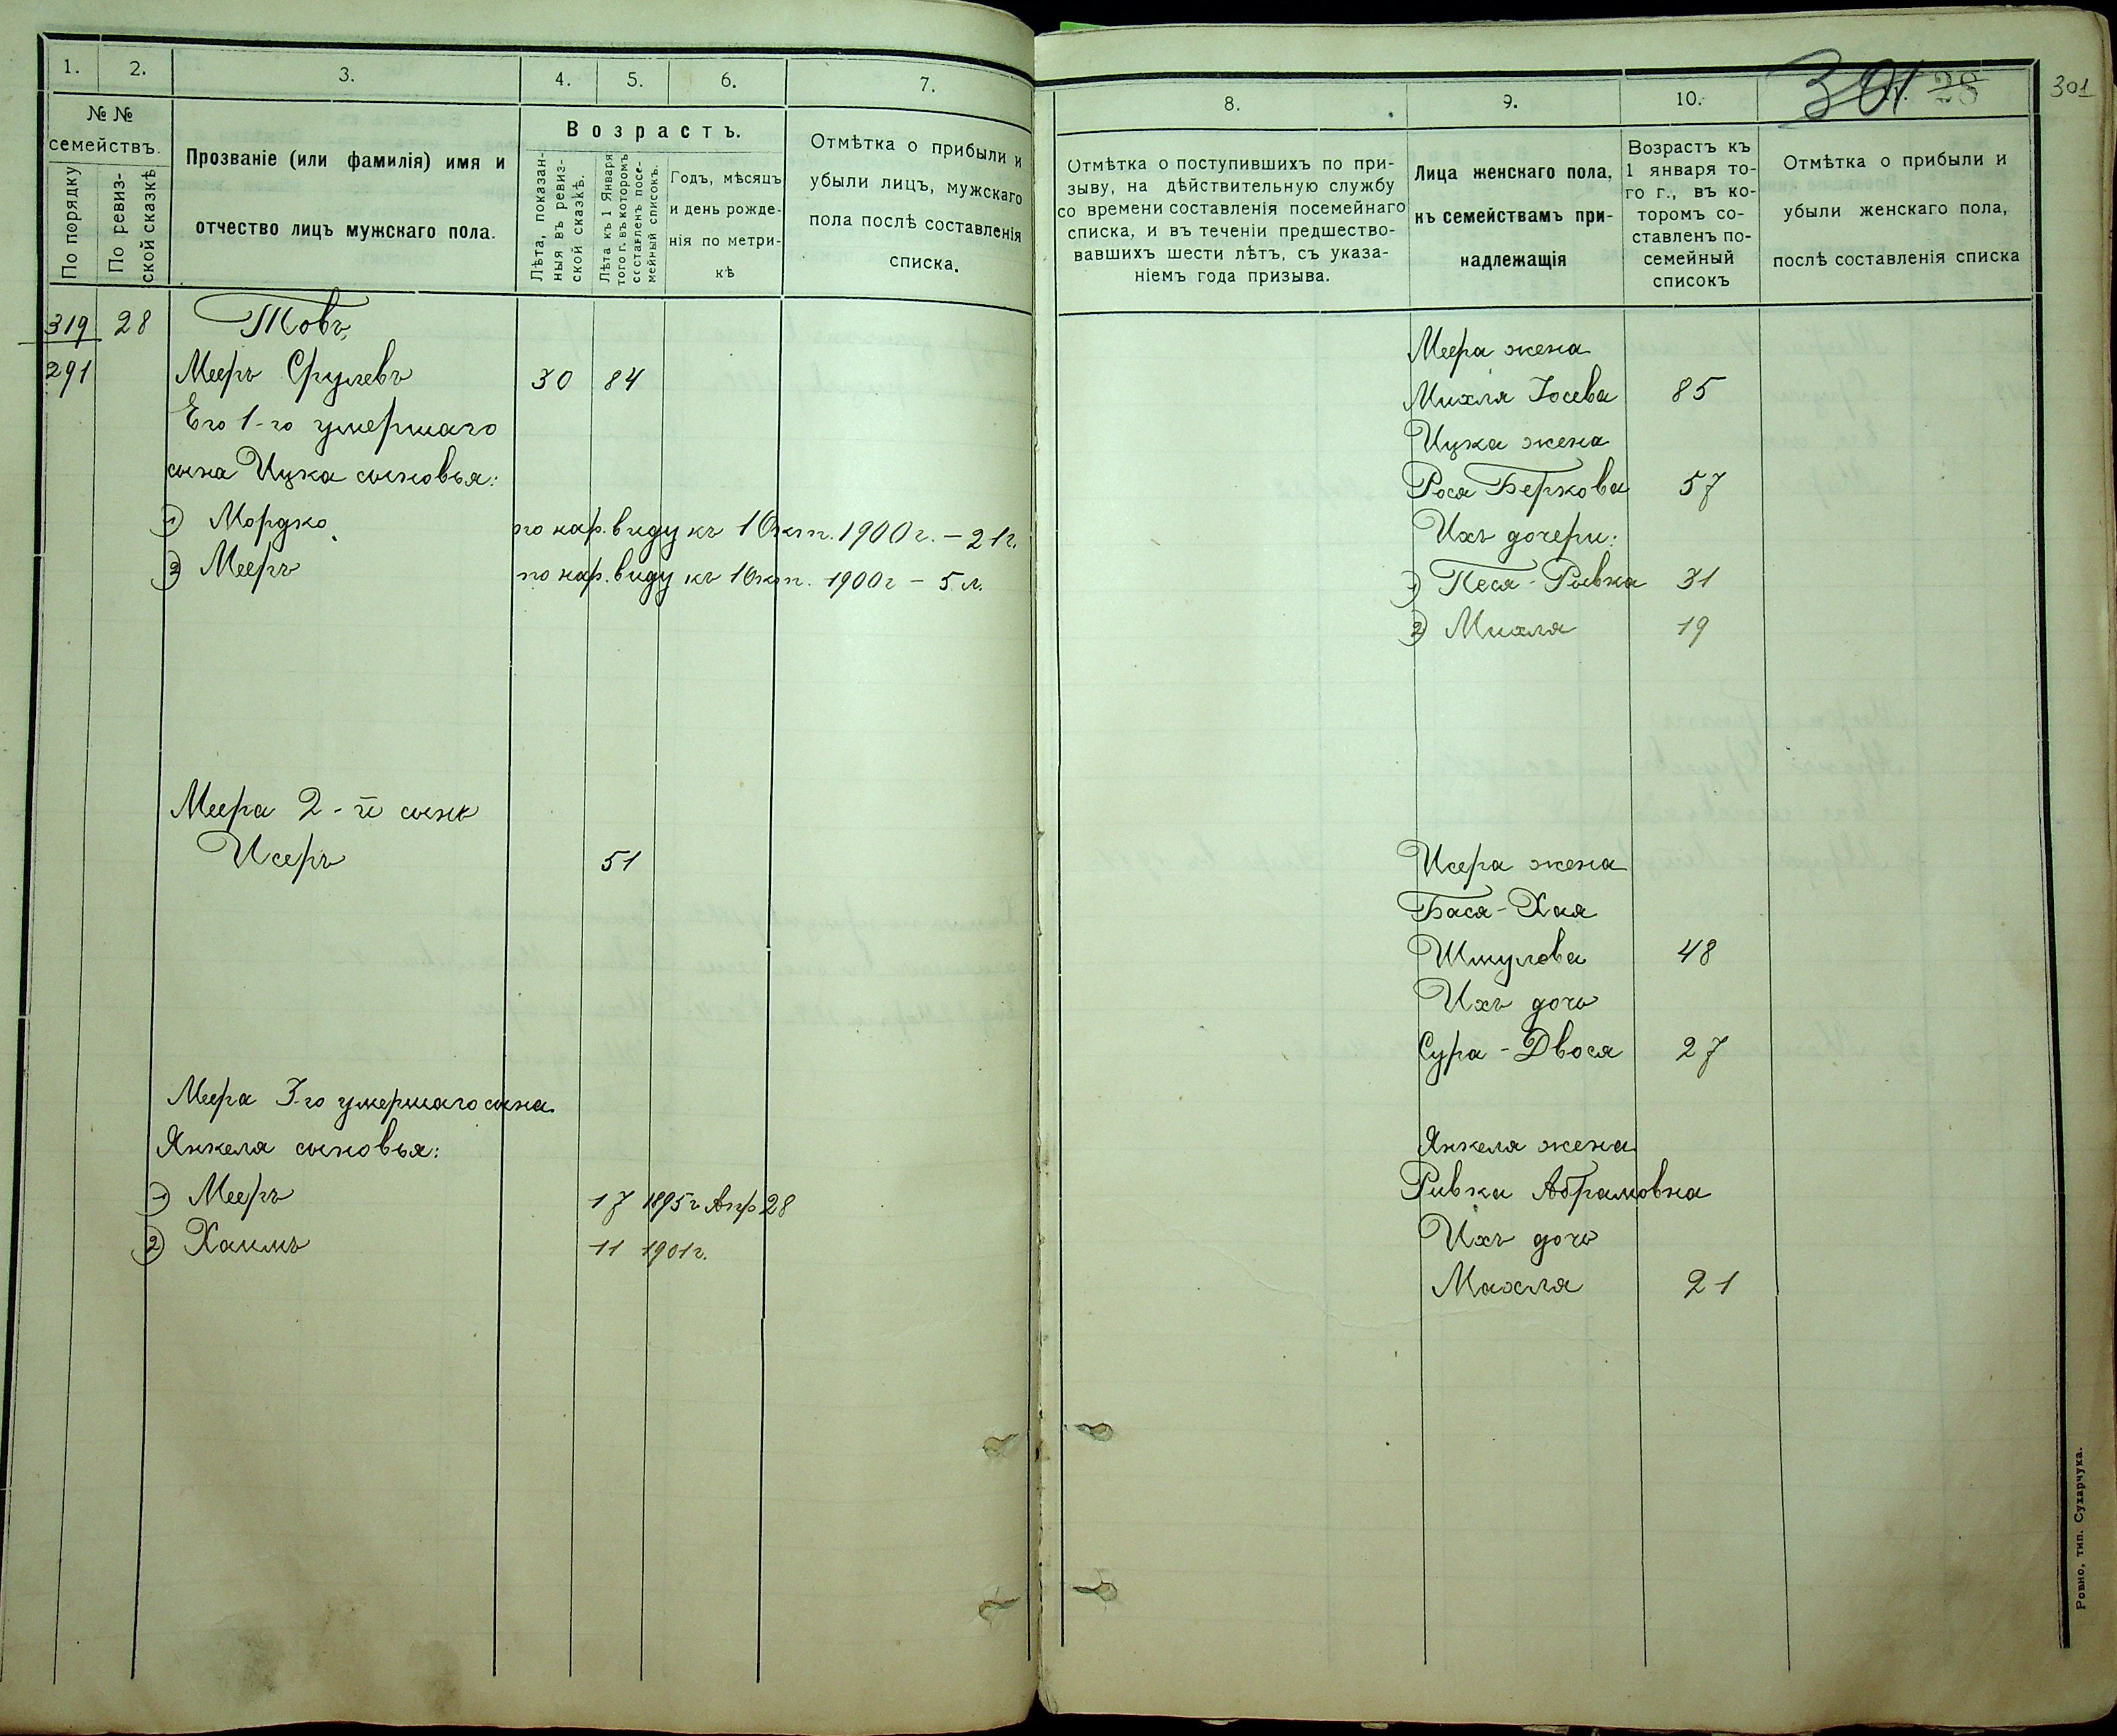 1. 2. 3. 4. 5. 6. 7.
№ №
семействъ.
По порядку
По ревиз-
ской сказкѣ
Прозваніе (или фамилія) имя и
отчество лицъ мужскаго пола.
Возрастъ.
Лѣта, показан-
ныя въ ревиз-
ской сказкѣ.
Лѣта къ 1 Января
того г. въ которомъ
составленъ посе-
мейный списокъ.
Годъ, мѣсяцъ
и день рожде-
нія по метри-
кѣ
Отмѣтка о прибыли и
убыли лицъ, мужскаго
пола послѣ составленія
списка.
319 28 Товъ
291 Мееръ Срулевъ 30 84
Его 1-го умершаго
сына Ицка сыновья:
1) Мордко по нар. виду къ 1 Окт. 1900 г. – 21 г.
2) Мееръ по нар. виду къ 1 Окт. 1900 г – 5 л.
Меера 2-й сынъ
Исеръ 51
Меера 3-го умершаго сына
Янкеля сыновья:
1) Мееръ 17 1895 г Апр 28
2) Хаимъ 11 1901 г.
8. 9. 10. 301 28 301
Отмѣтка о поступившихъ по при-
зыву, на дѣйствительную службу
со времени составленія посемейнаго
списка, и въ теченіи предшество-
вавшихъ шести лѣтъ, съ указа-
ніемъ года призыва.
Лица женскаго пола,
къ семействамъ при-
надлежащія
Возрастъ къ
1 января то-
го г., въ ко-
торомъ со-
ставленъ по-
семейный
списокъ
Отмѣтка о прибыли и
убыли женскаго пола,
послѣ составленія списка
Меера жена
Михля Іосева 85
Ицка жена
Рося Беркова 57
Ихъ дочери:
1) Песя-Ривка 31
2) Михля 19
Исера жена
Бася-Хая
Шмулова 48
Ихъ дочь
Сура-Двося 27
Янкеля жена
Ривка Абрамовна
Ихъ дочь
Махля 21
Ровно, тип. Сухарчука.